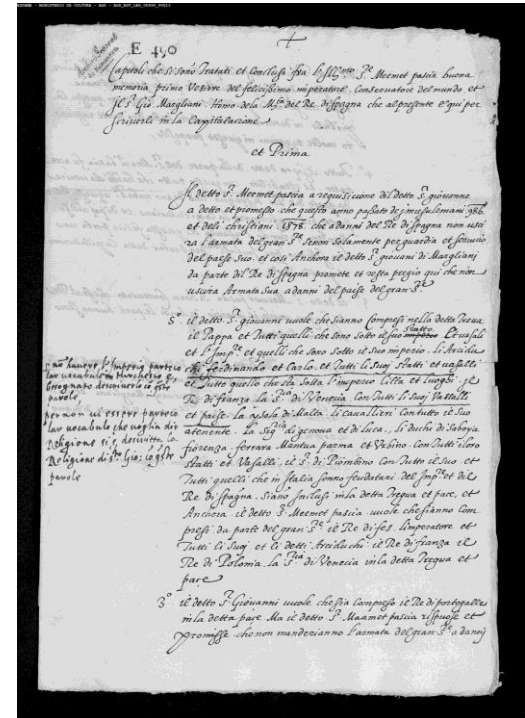 ESPAÑA - MINISTERIO DE CULTURA - AGS - AGS_EST_LEG_00490_00013
E 490
Capitoli che si sono Tratati et Conclusi fra l'Ill.mo S.r Meemet pascià buona
memoria primo Vesire del felicissimo imperatore Conservatore del mondo et
il s.r Gio. Margliani homo della M.tà del Re di spagna che al presente è qui per
scriverli in la Capitulatione
et Prima
Il detto S.r Meemet pascia a requisicione dil detto S.r giovanne
a detto et promesso che questo anno passato de jmusulemani 986.
et deli christiani 1578. che a danni del Re di spagna non usci
ra l'armata del gran S.re senon solamente per guardia et servicio
del paese suo. et cosi Anchora il detto S.r giovani di Margliani
da parte dil Re di spagna promete et resta pregio qui che non
uscira Armata sua a danni del paese del gran S.re
il detto S.r giovanni vuole che sianno Compresi nella detta Treua
il Pappa et Tutti quelli che sono sotto il suo statto. Et vasali
et l'Imp.re et quelli che sono sotto il suo imperio. li Arciducha
Ferdinando et Carlo. et Tutti li suoj statti et vasalli
et Tutto quello che sta sotto l'imperio Citta et luoghi. il
Re di franza la S.ria di Venecia Con Tutti li suoj Vassalli
et paise. la ysola di Malta. li cavallieri Con tutto il suo
atenente. La Sig.ria di genoua et di luca, li duchi di Savoyia
fiorenza ferrara Mantua parma et Vrbino. Con Tutti i loro
statti et Vasalli, il S.r di Piombino con Tutto il suo. et
Tutti quelli che in Italia sonno feudatari del Imp.re et dil
Re di spagna. siano Inclusi in la detta Tregua et pace, et
Anchora il detto S.r Meemet pascia vuole che sianno Com
presi da parte del gran S.re il Re di fes. limperatore et
Tutti li suoj et li detti Arciduchi il Re di franza il
Re di Polonia. la S.ria di Venecia in la detta Tregua et
pace
3º il detto S.r Giovanni vuole che sia Compreso il Re di portogallo
in la detta pace. Ma il detto S.r Maamet pascia rispose et
promisse che non manderianno l'armata del gran S.re a dannj
parole,
per non vi essere partico
lar vocabulo che voglia dir
Religione si è descritta la
Religione di S.to Gio: co q.ste
parole